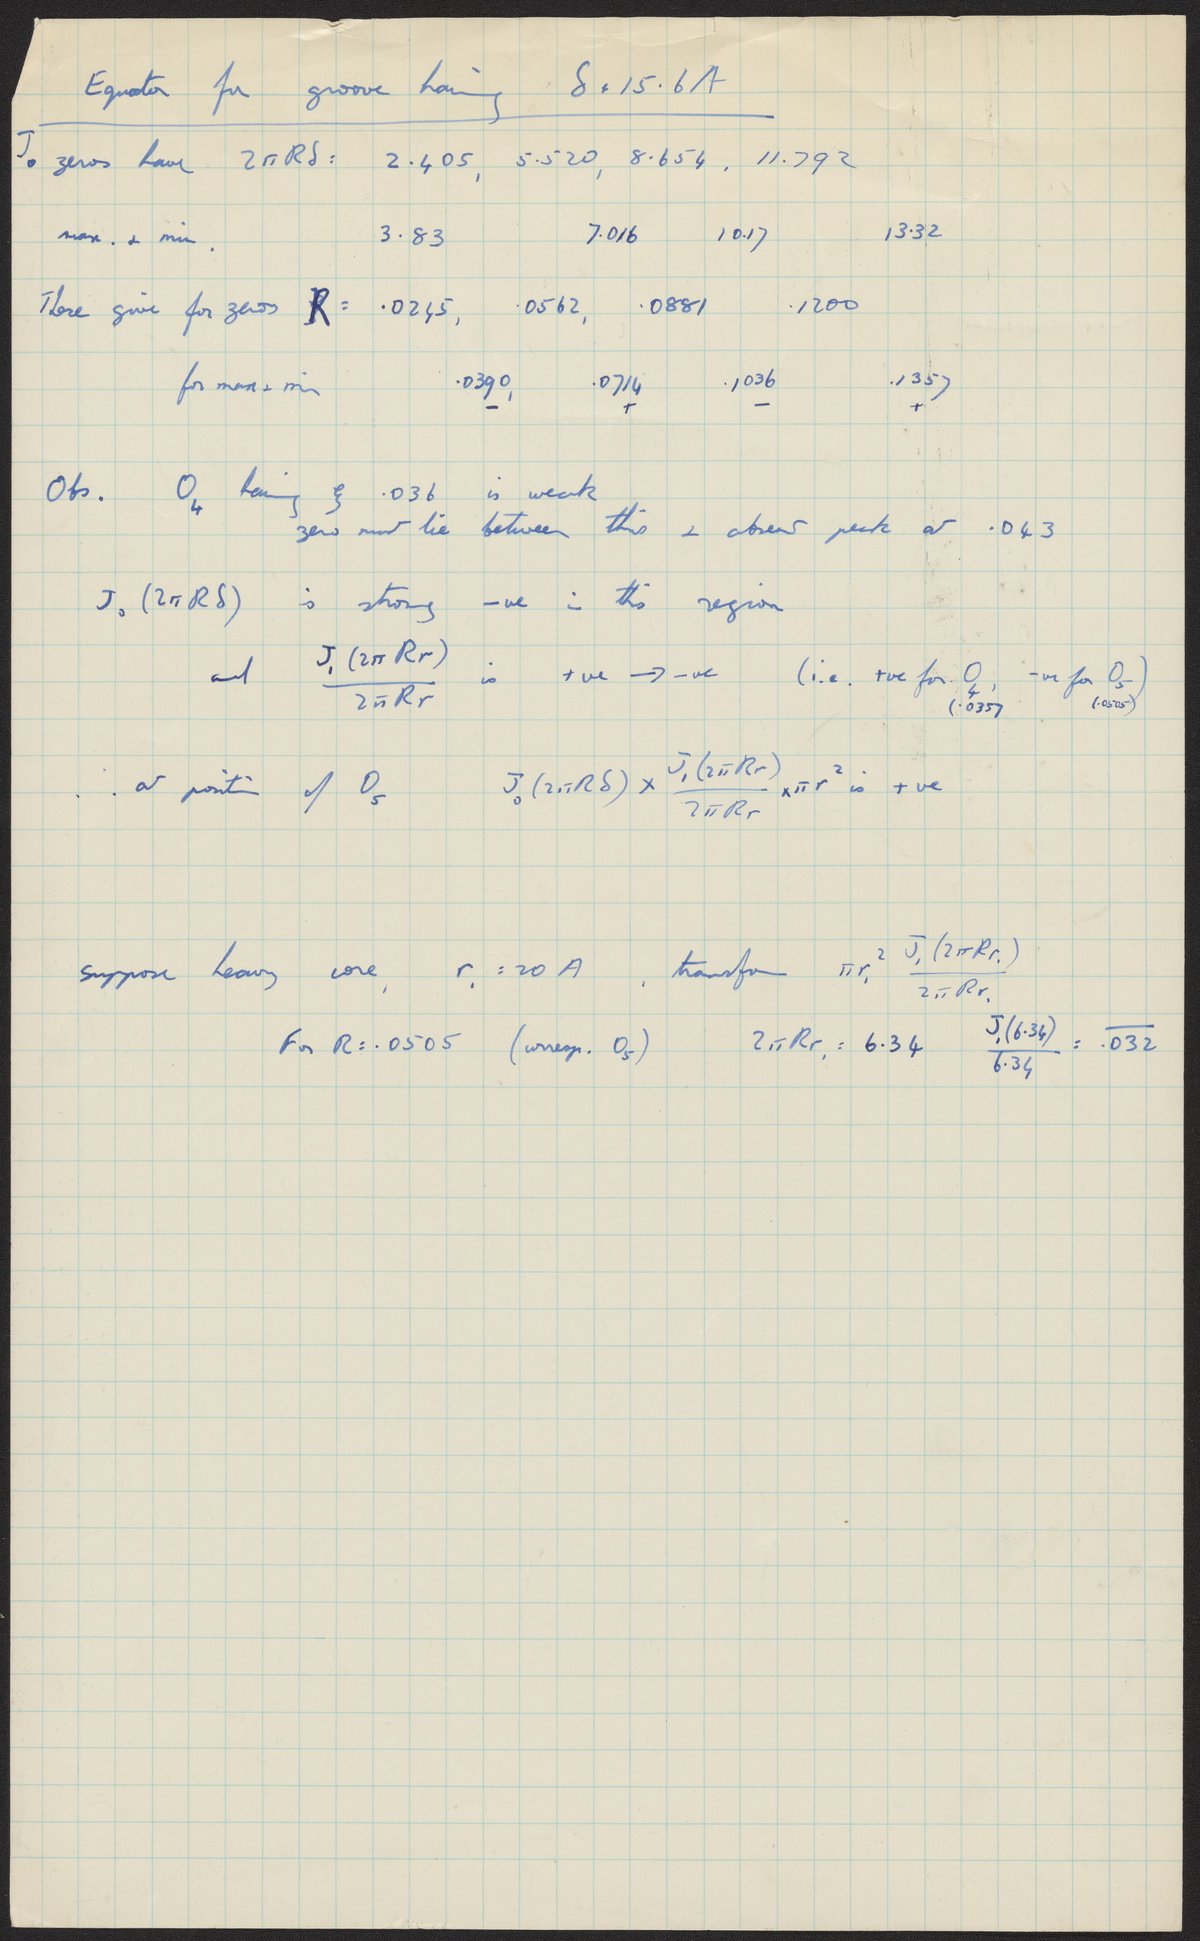 Equator for groove having δ = 15.6 A
J₀ zeros have 2πRδ = 2.405, 5.520, 8.654, 11.792
max. & min. 3.83 7.016 10.17 13.32
These give for zeros R = .0245, .0562, .0881 .1200
for max & min .0390, .0714 .1036 .1357
− + − +
Obs. O₄ having ξ .036 is weak
zero must lie between this & observd peak at .043
J₀ (2πRδ) is strong −ve in this region
and J₁(2πRr)/2πRr is +ve → −ve (i.e. +ve for O₄, −ve for O₅)
(.0357) (.0505)
∴ at position of O₅ J₀(2πRδ) × J₁(2πRr)/2πRr × πr² is +ve
suppose heavy core, r₁ = 20 A, transform πr₁² J₁(2πRr₁)/2πRr₁
For R = .0505 (corresp. O₅) 2πRr₁ = 6.34 J₁(6.34)/6.34 = .0̅3̅2̅